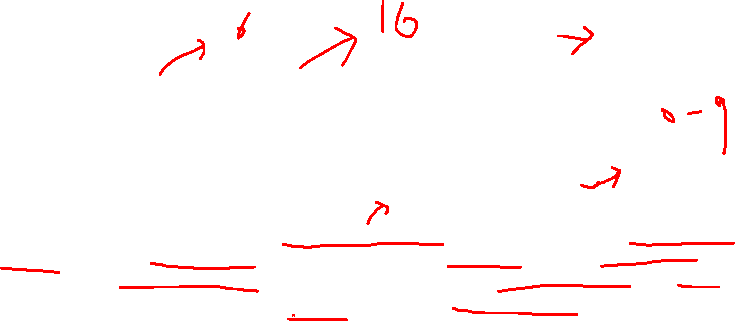 6 16
0-9